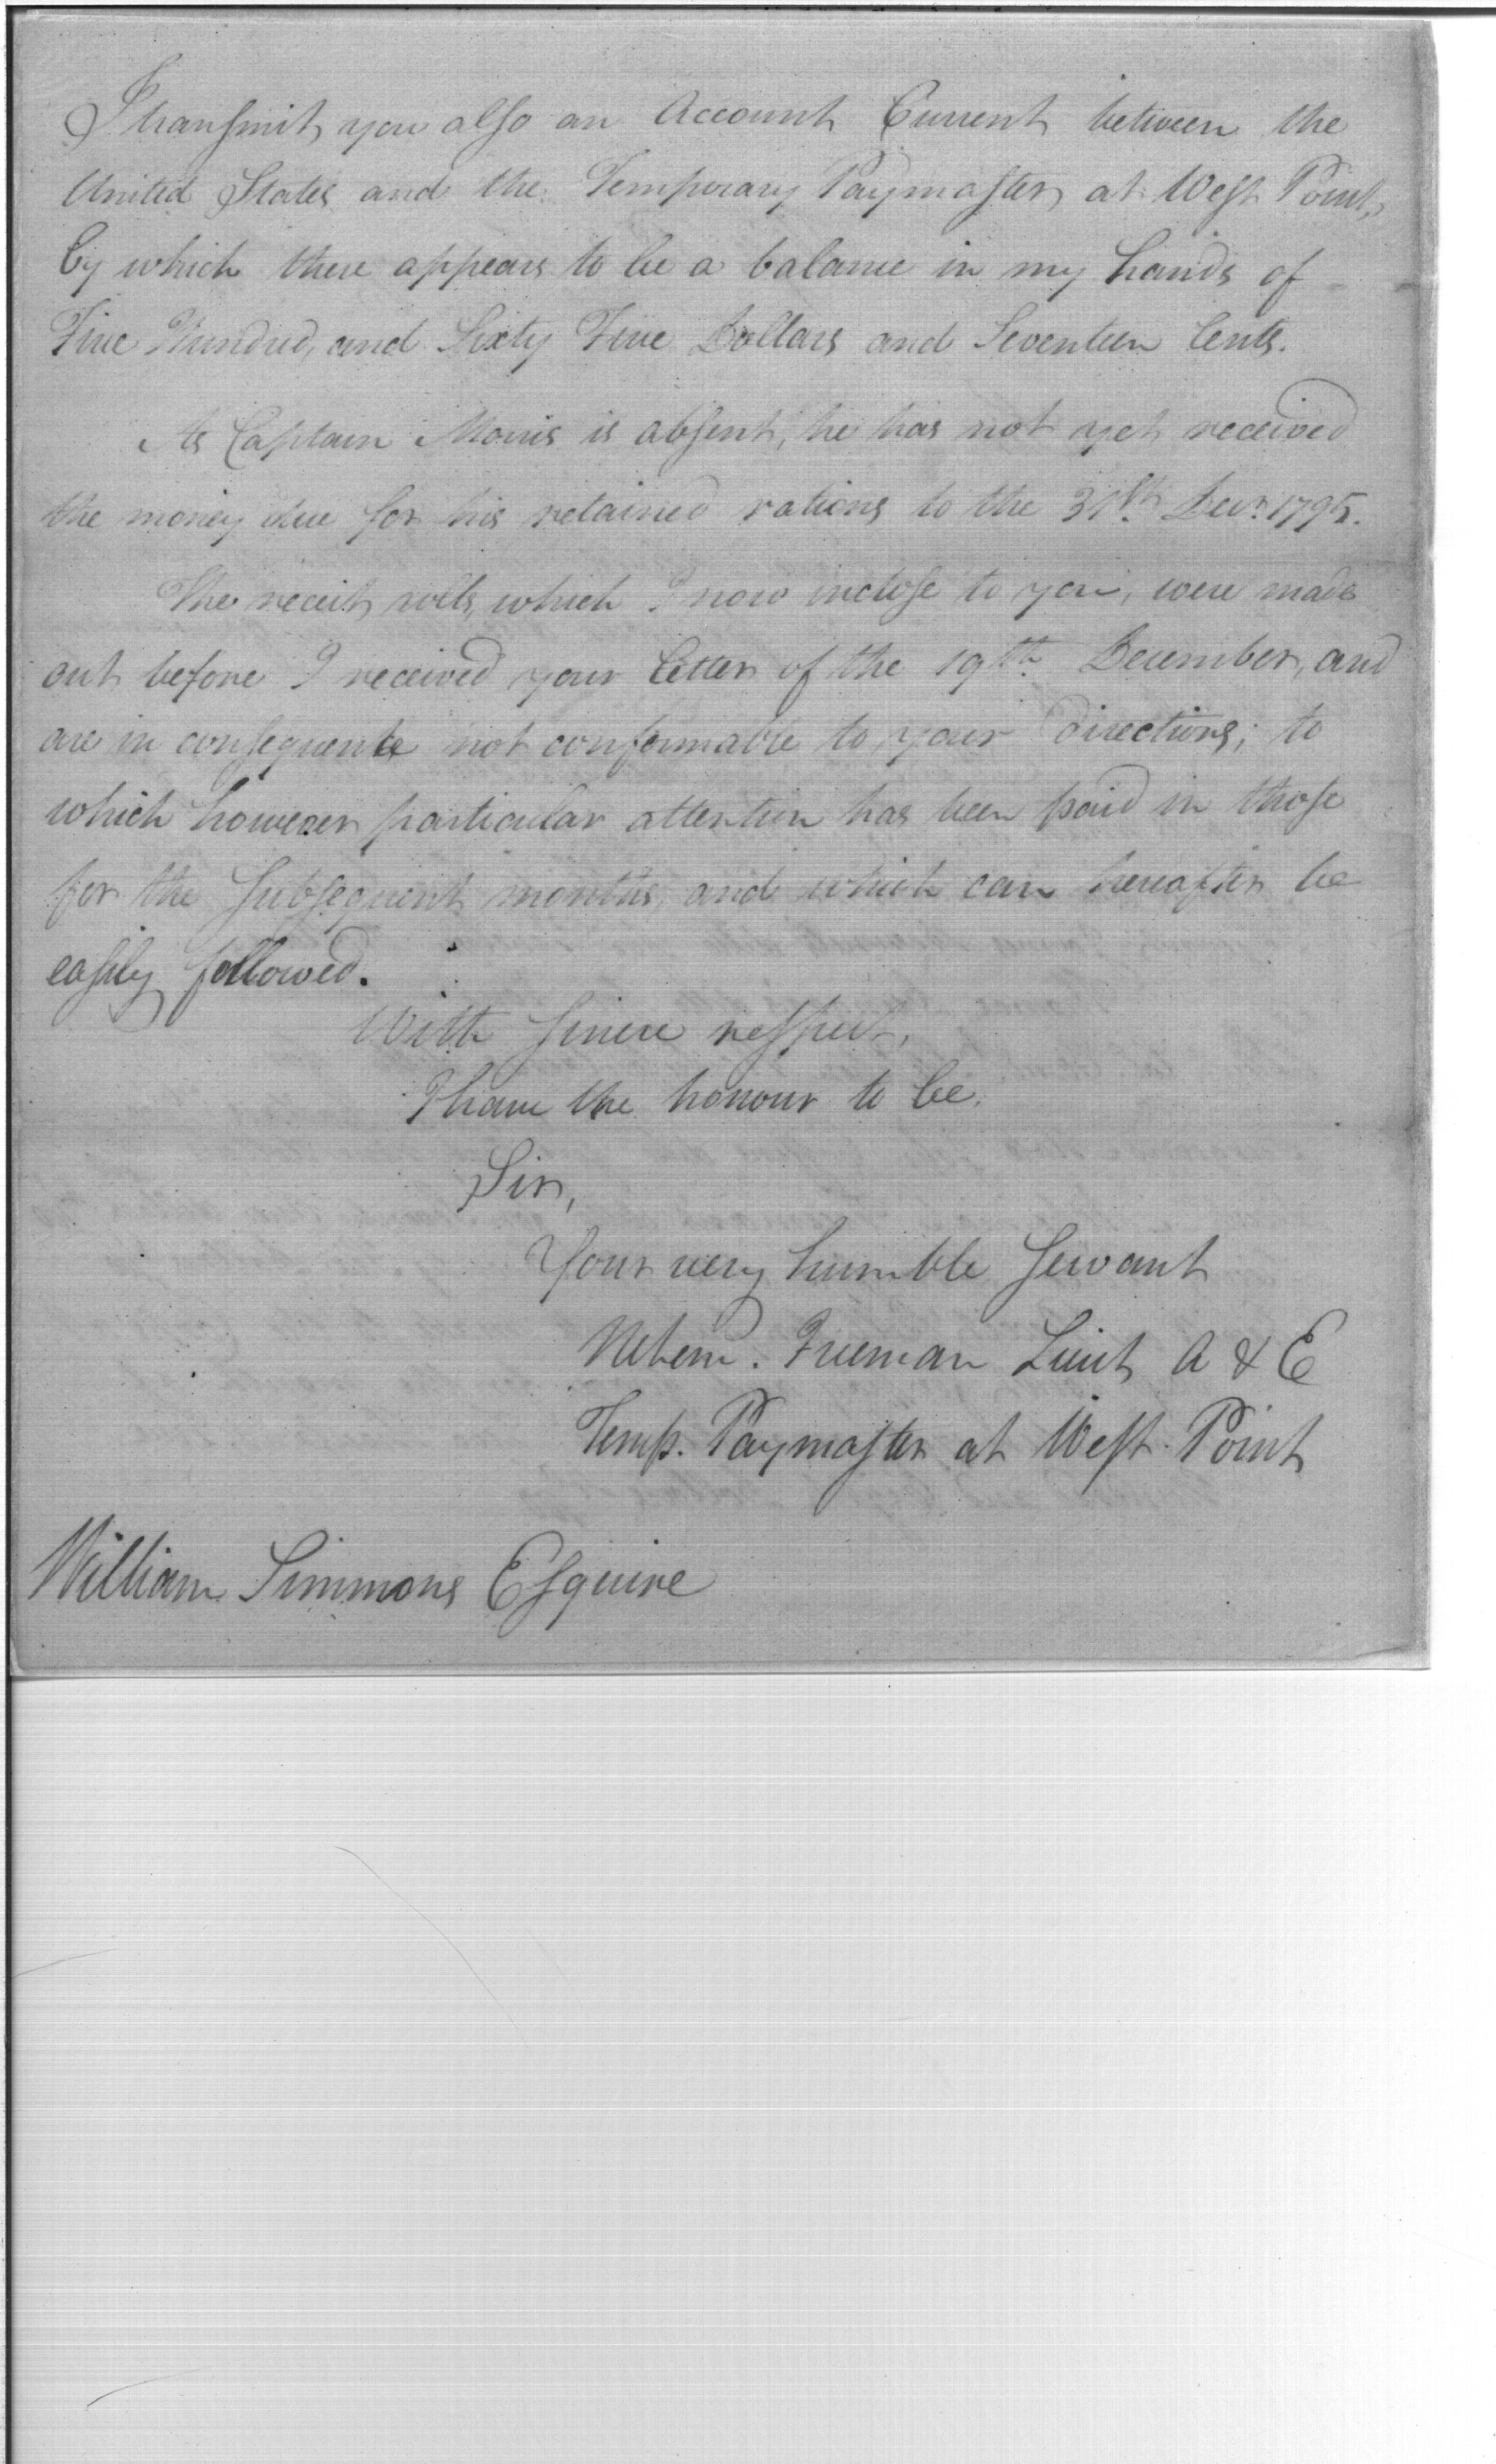 I transmit you also an Account Current between the
United States and the Temporary Paymaster at West Point,
by which there appears to be a balance in my hands of
Five Hundred, and Sixty Five Dollars and Seventeen Cents.
As Captain Morris is absent, he has not yet received
the money due for his retained rations to the 31st Decr. 1795.
The receit rolls, which I now inclose to you, were made
out before I received your letter of the 19th December, and
are in consequence not conformable to your directions; to
which however particular attention has been paid in those
for the subsequent months, and which can hereafter be
easily followed.
With sincere respect,
I have the honour to be,
Sir,
Your very humble servant
Nehem. Freeman Lieut A & E
Temp. Paymaster at West Point
William Simmons Esquire